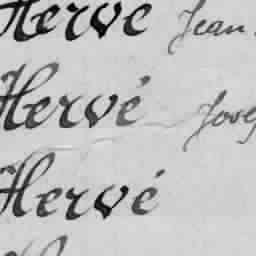 Hervé Jean
Hervé Jose
Hervé